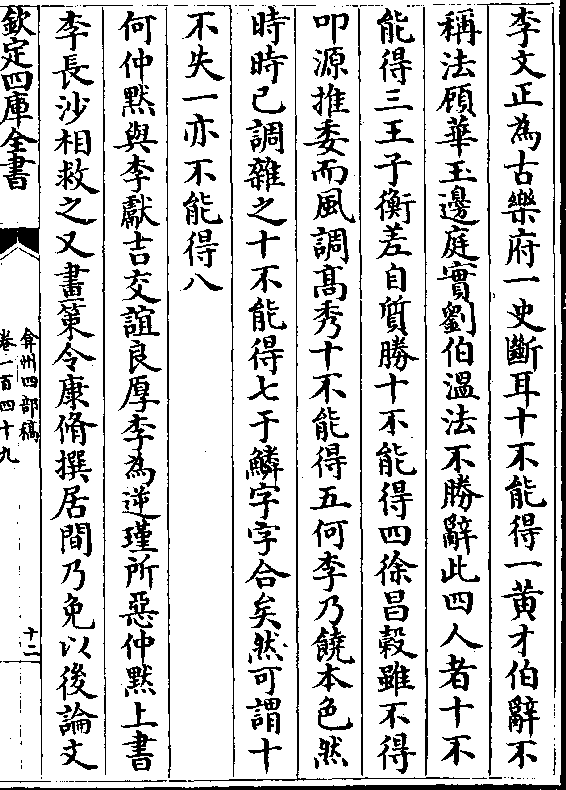 李文正為古樂府一史斷耳十不能得一黄才伯辭不
稱法顧華玉邊庭實劉伯温法不勝辭此四人者十不
能得三王子衡差自質勝十不能得四徐昌榖雖不得
叩源推委而風調髙秀十不能得五何李乃饒本色然
時時已調雜之十不能得七于鱗字字合矣然可謂十
不失一亦不能得八
何仲黙與李獻吉交誼良厚李為逆瑾所惡仲黙上書
李長沙相救之又畫策令康脩撰居間乃免以後論文
欽定四庫全書
弇州四部稿
卷一百四十九
十二